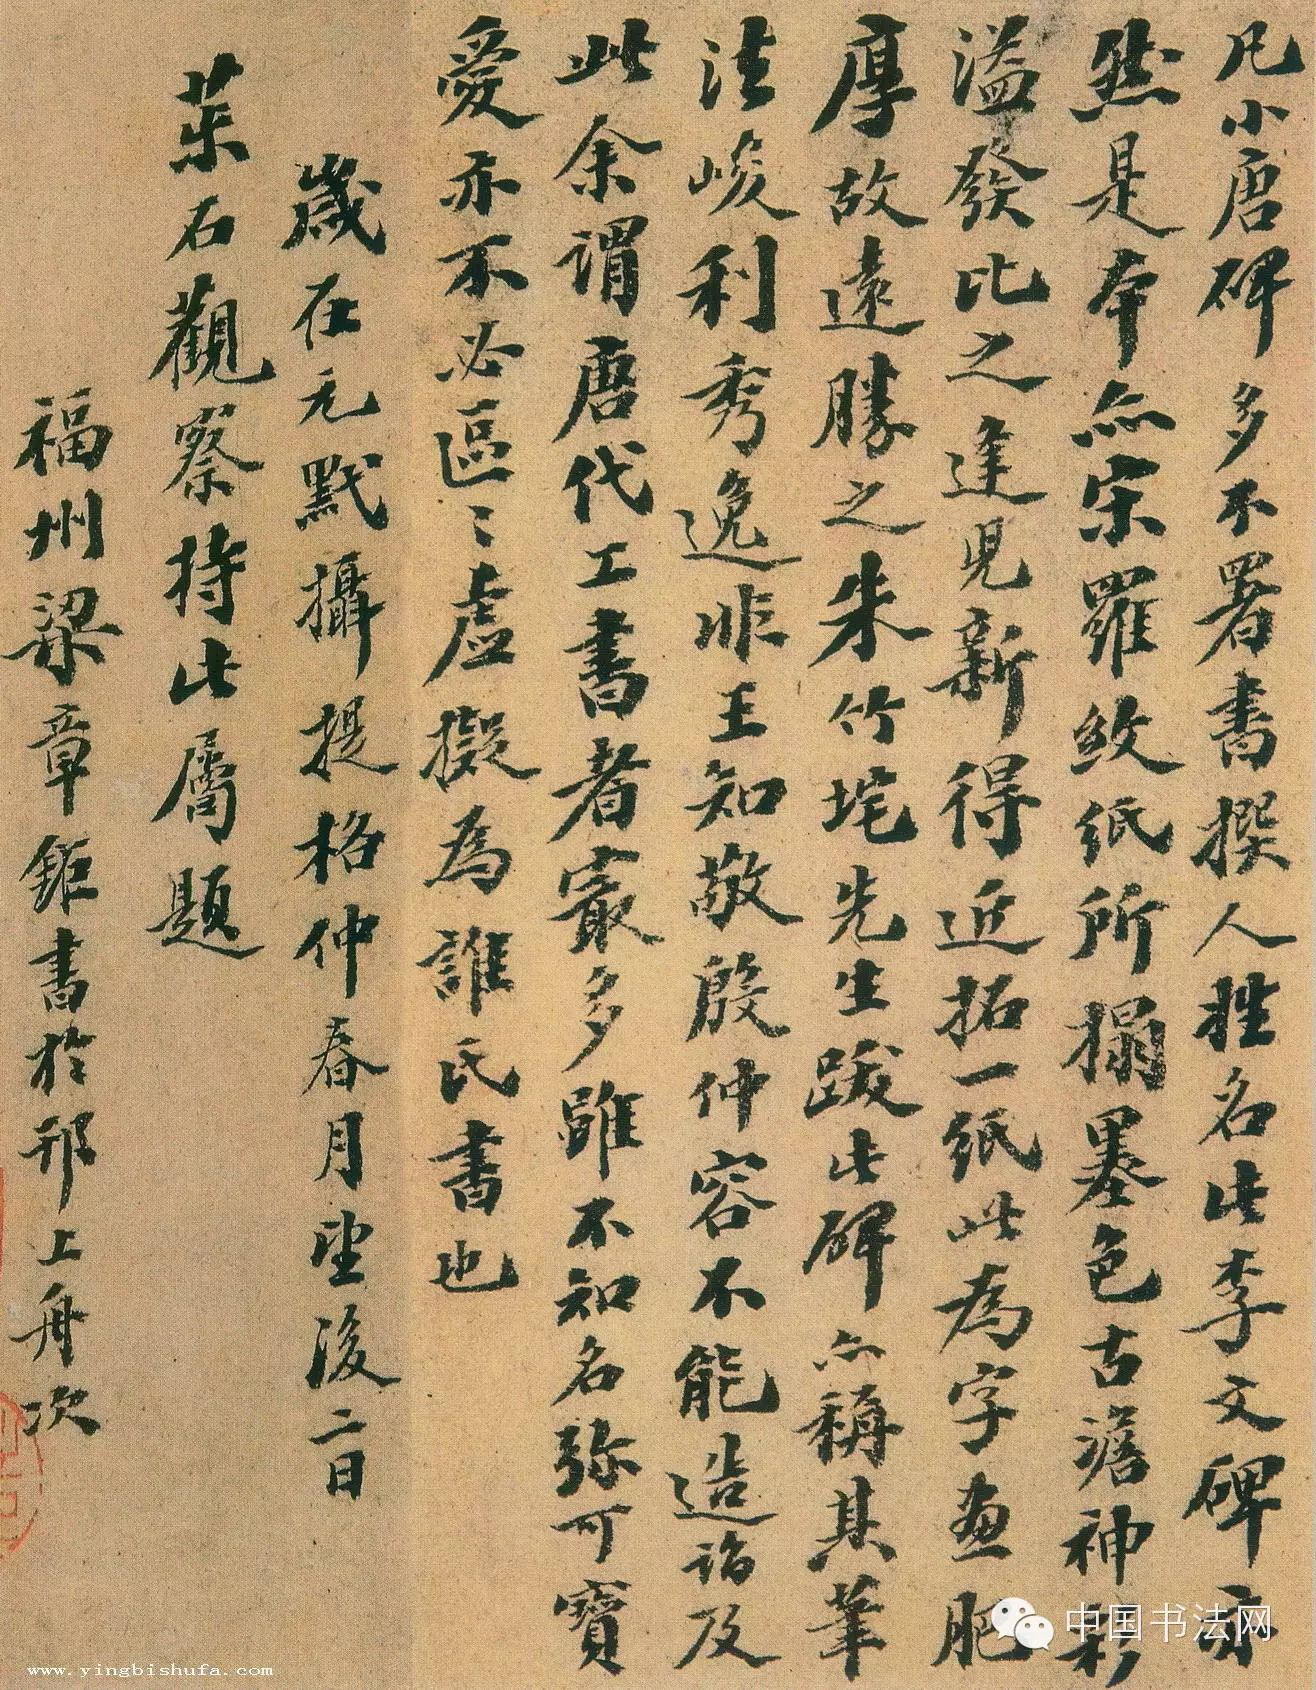 凡小唐碑多不署書撰人姓名此李文碑亦
然是本亦宋羅紋紙所搨墨色古澹神彩
溢發比之逢兒新得近拓一紙此為字畫肥
厚故遠勝之朱竹垞先生跋此碑亦稱其筆
法峻利秀逸非王知敬殷仲容不能造詣及
此余謂唐代工書者㝡多雖不知名弥可寶
愛亦不必區〻虛擬為誰氏書也
歲在元默攝提格仲春月望後二日
石觀察持此屬題
福州梁章鉅書於邗上舟次
中国书法网
www.yingbishufa.com